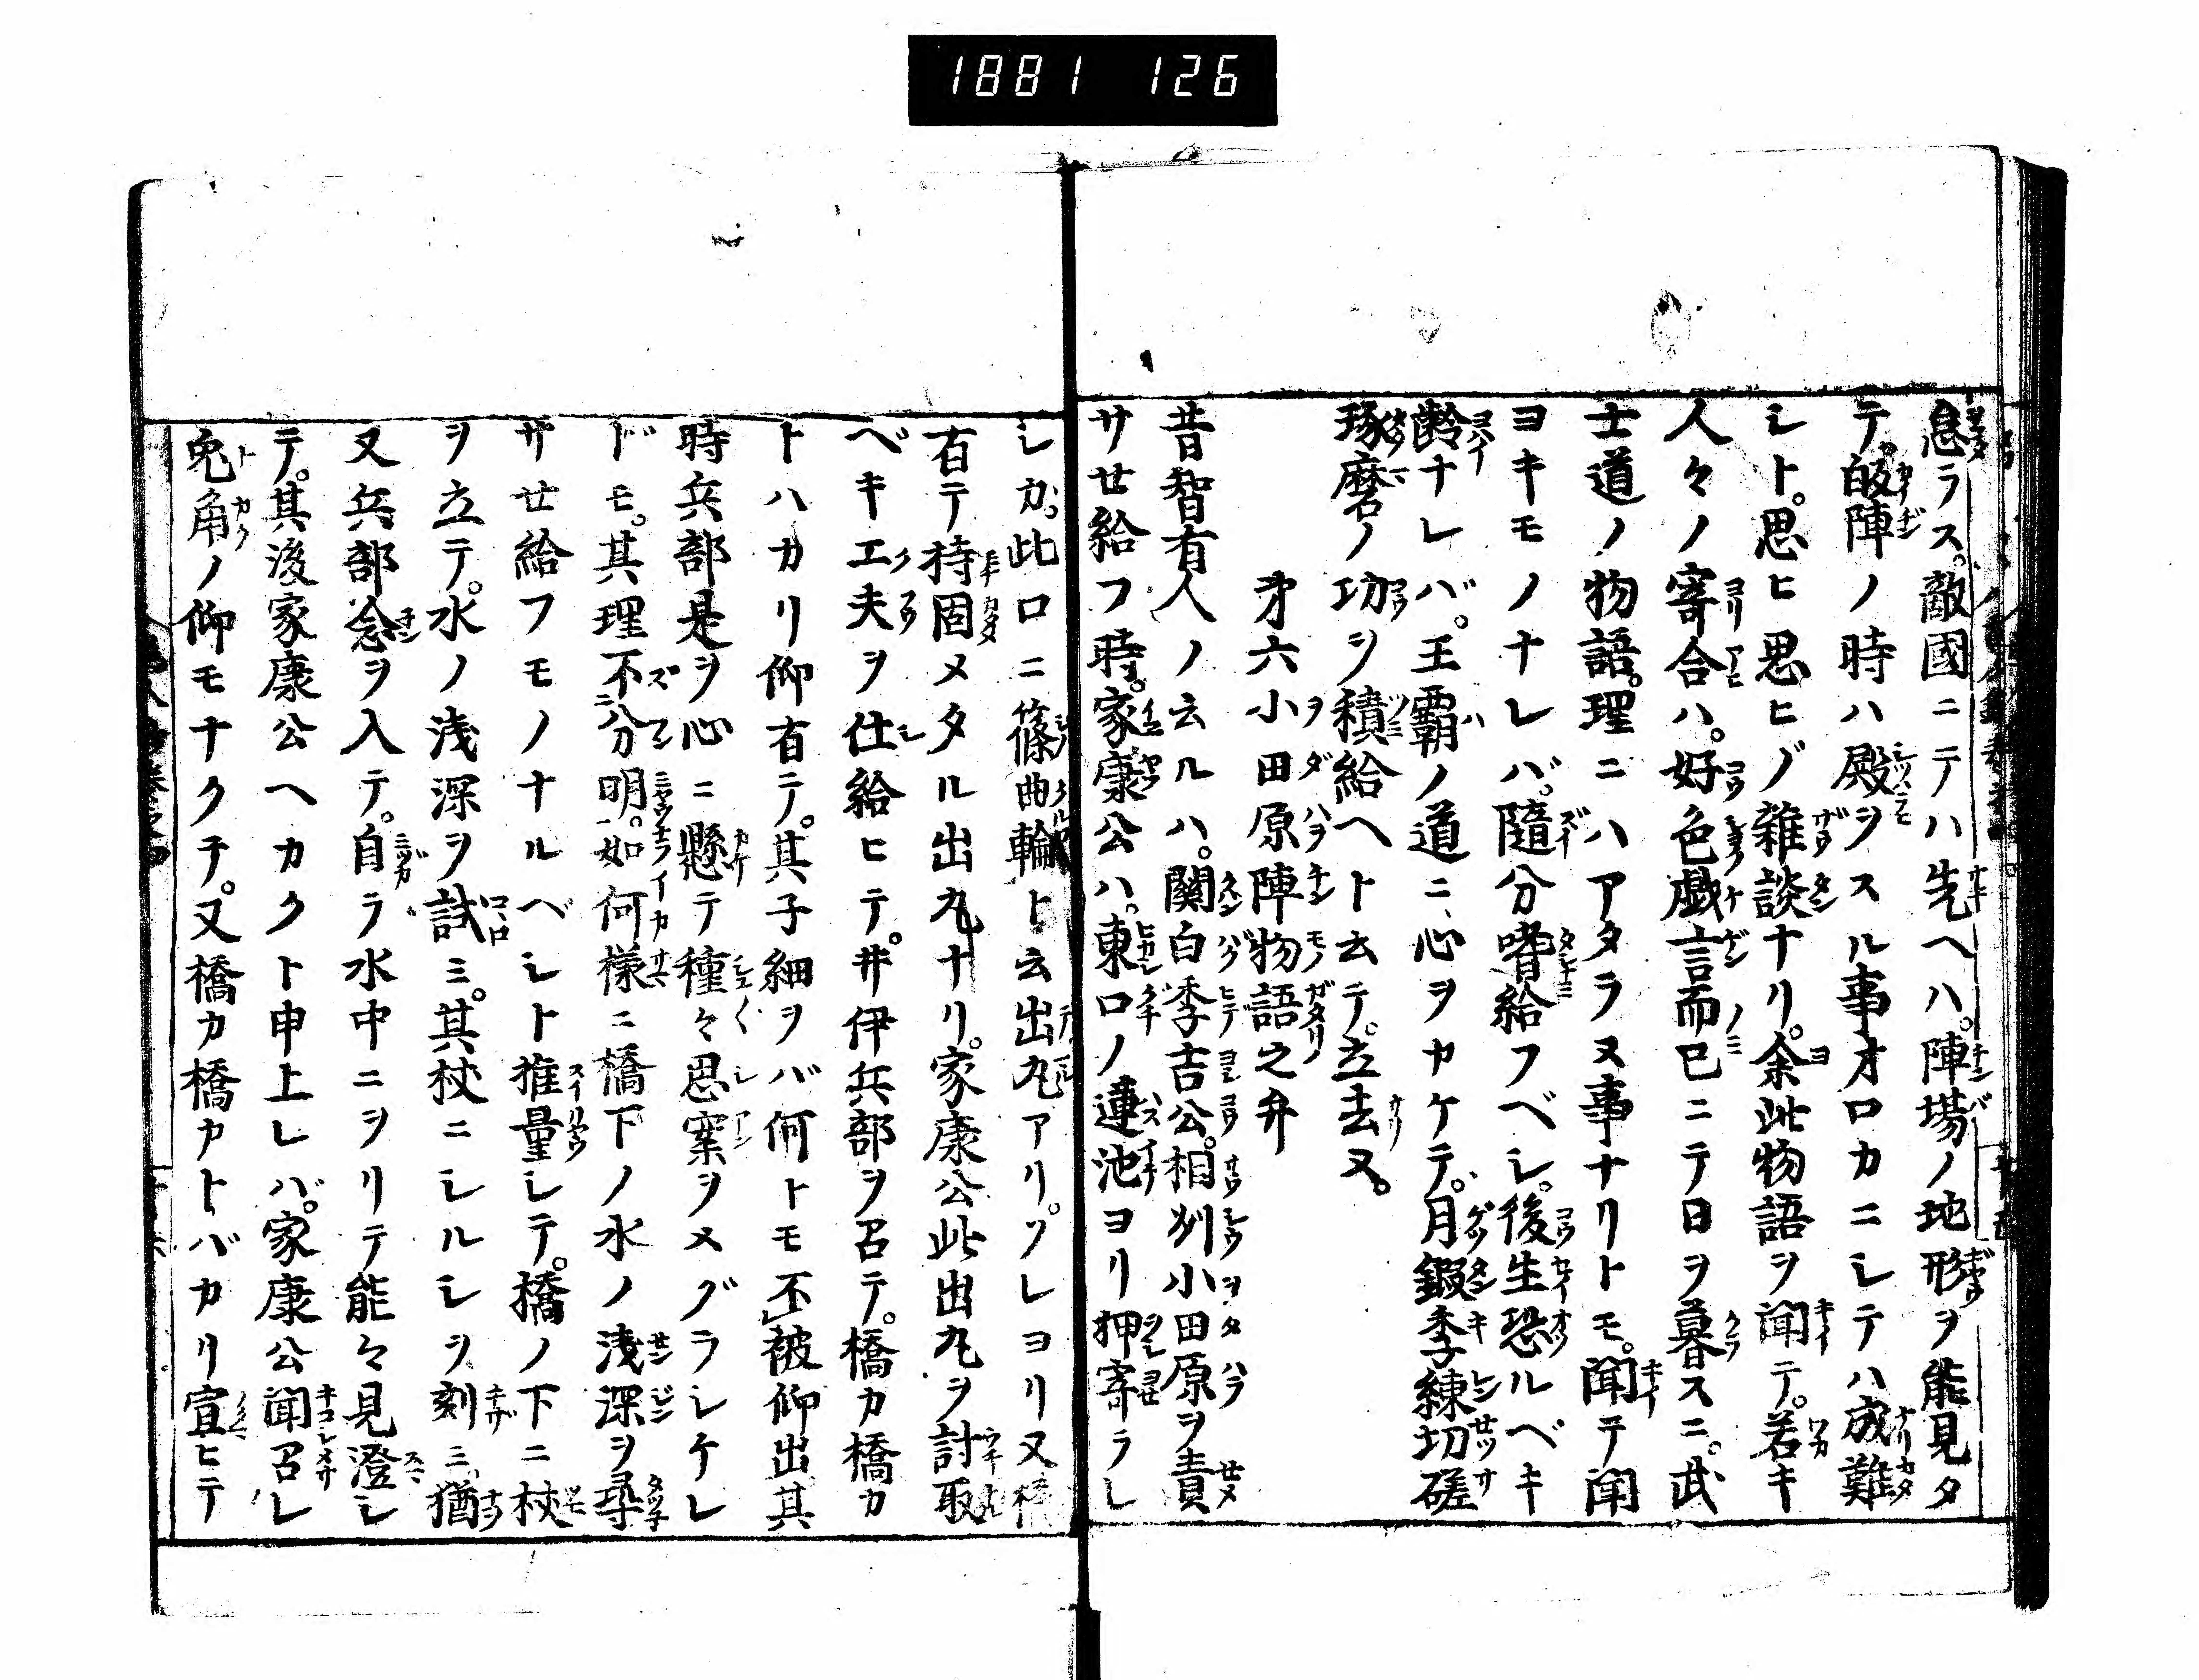 1881 126
息ラス。敵國ニテハ先ヘハ。陣場ノ地形ヲ能見タ
テ。皈陣ノ時ハ殿ヲスル事オロカニシテハ成難
シト。思ヒ思ヒノ雑談ナリ。余此物語ヲ聞テ。若キ
人々ノ寄合ハ。好色戯言而已ニテ日ヲ暮スニ。武
士道ノ物語。理ニハアタラヌ事ナリトモ。聞テ聞
ヨキモノナレバ。隨分嗜給フベシ。後生恐ルベキ
齢ナレバ。王覇ノ道ニ心ヲカケテ。月鍜季練切磋
琢磨ノ功ヲ積給ヘト云テ。立去ヌ。
第六小田原陣物語之弁
昔智有人ノ云ルハ。関白季吉公。相州小田原ヲ責
サセ給フ時。家康公ハ。東口ノ蓮池ヨリ押寄ラレ
シカ。此口ニ篠曲輪ト云出丸アリ。ソレヨリ又橋
有テ持固メタル出丸ナリ。家康公此出丸ヲ討取
ベキ工夫ヲ仕給ヒテ。井伊兵部ヲ召テ。橋カ橋カ
トハカリ仰有テ。其子細ヲバ何トモ不被仰出其
時兵部是ヲ心ニ懸テ種々思案ヲメグラシケレ
ドモ。其理不分明。如何様ニ橋下ノ水ノ浅深ヲ尋
サセ給フモノナルベシト推量シテ。橋ノ下ニ杖
ヲ立テ。水ノ浅深ヲ試ミ。其杖ニシルシヲ刻ミ。猶
又兵部念ヲ入テ。自ラ水中ニヲリテ能々見澄シ
テ。其後家康公ヘカクト申上レバ。家康公聞召レ
兎角ノ仰モナクテ。又橋カ橋カトバカリ宣ヒテ